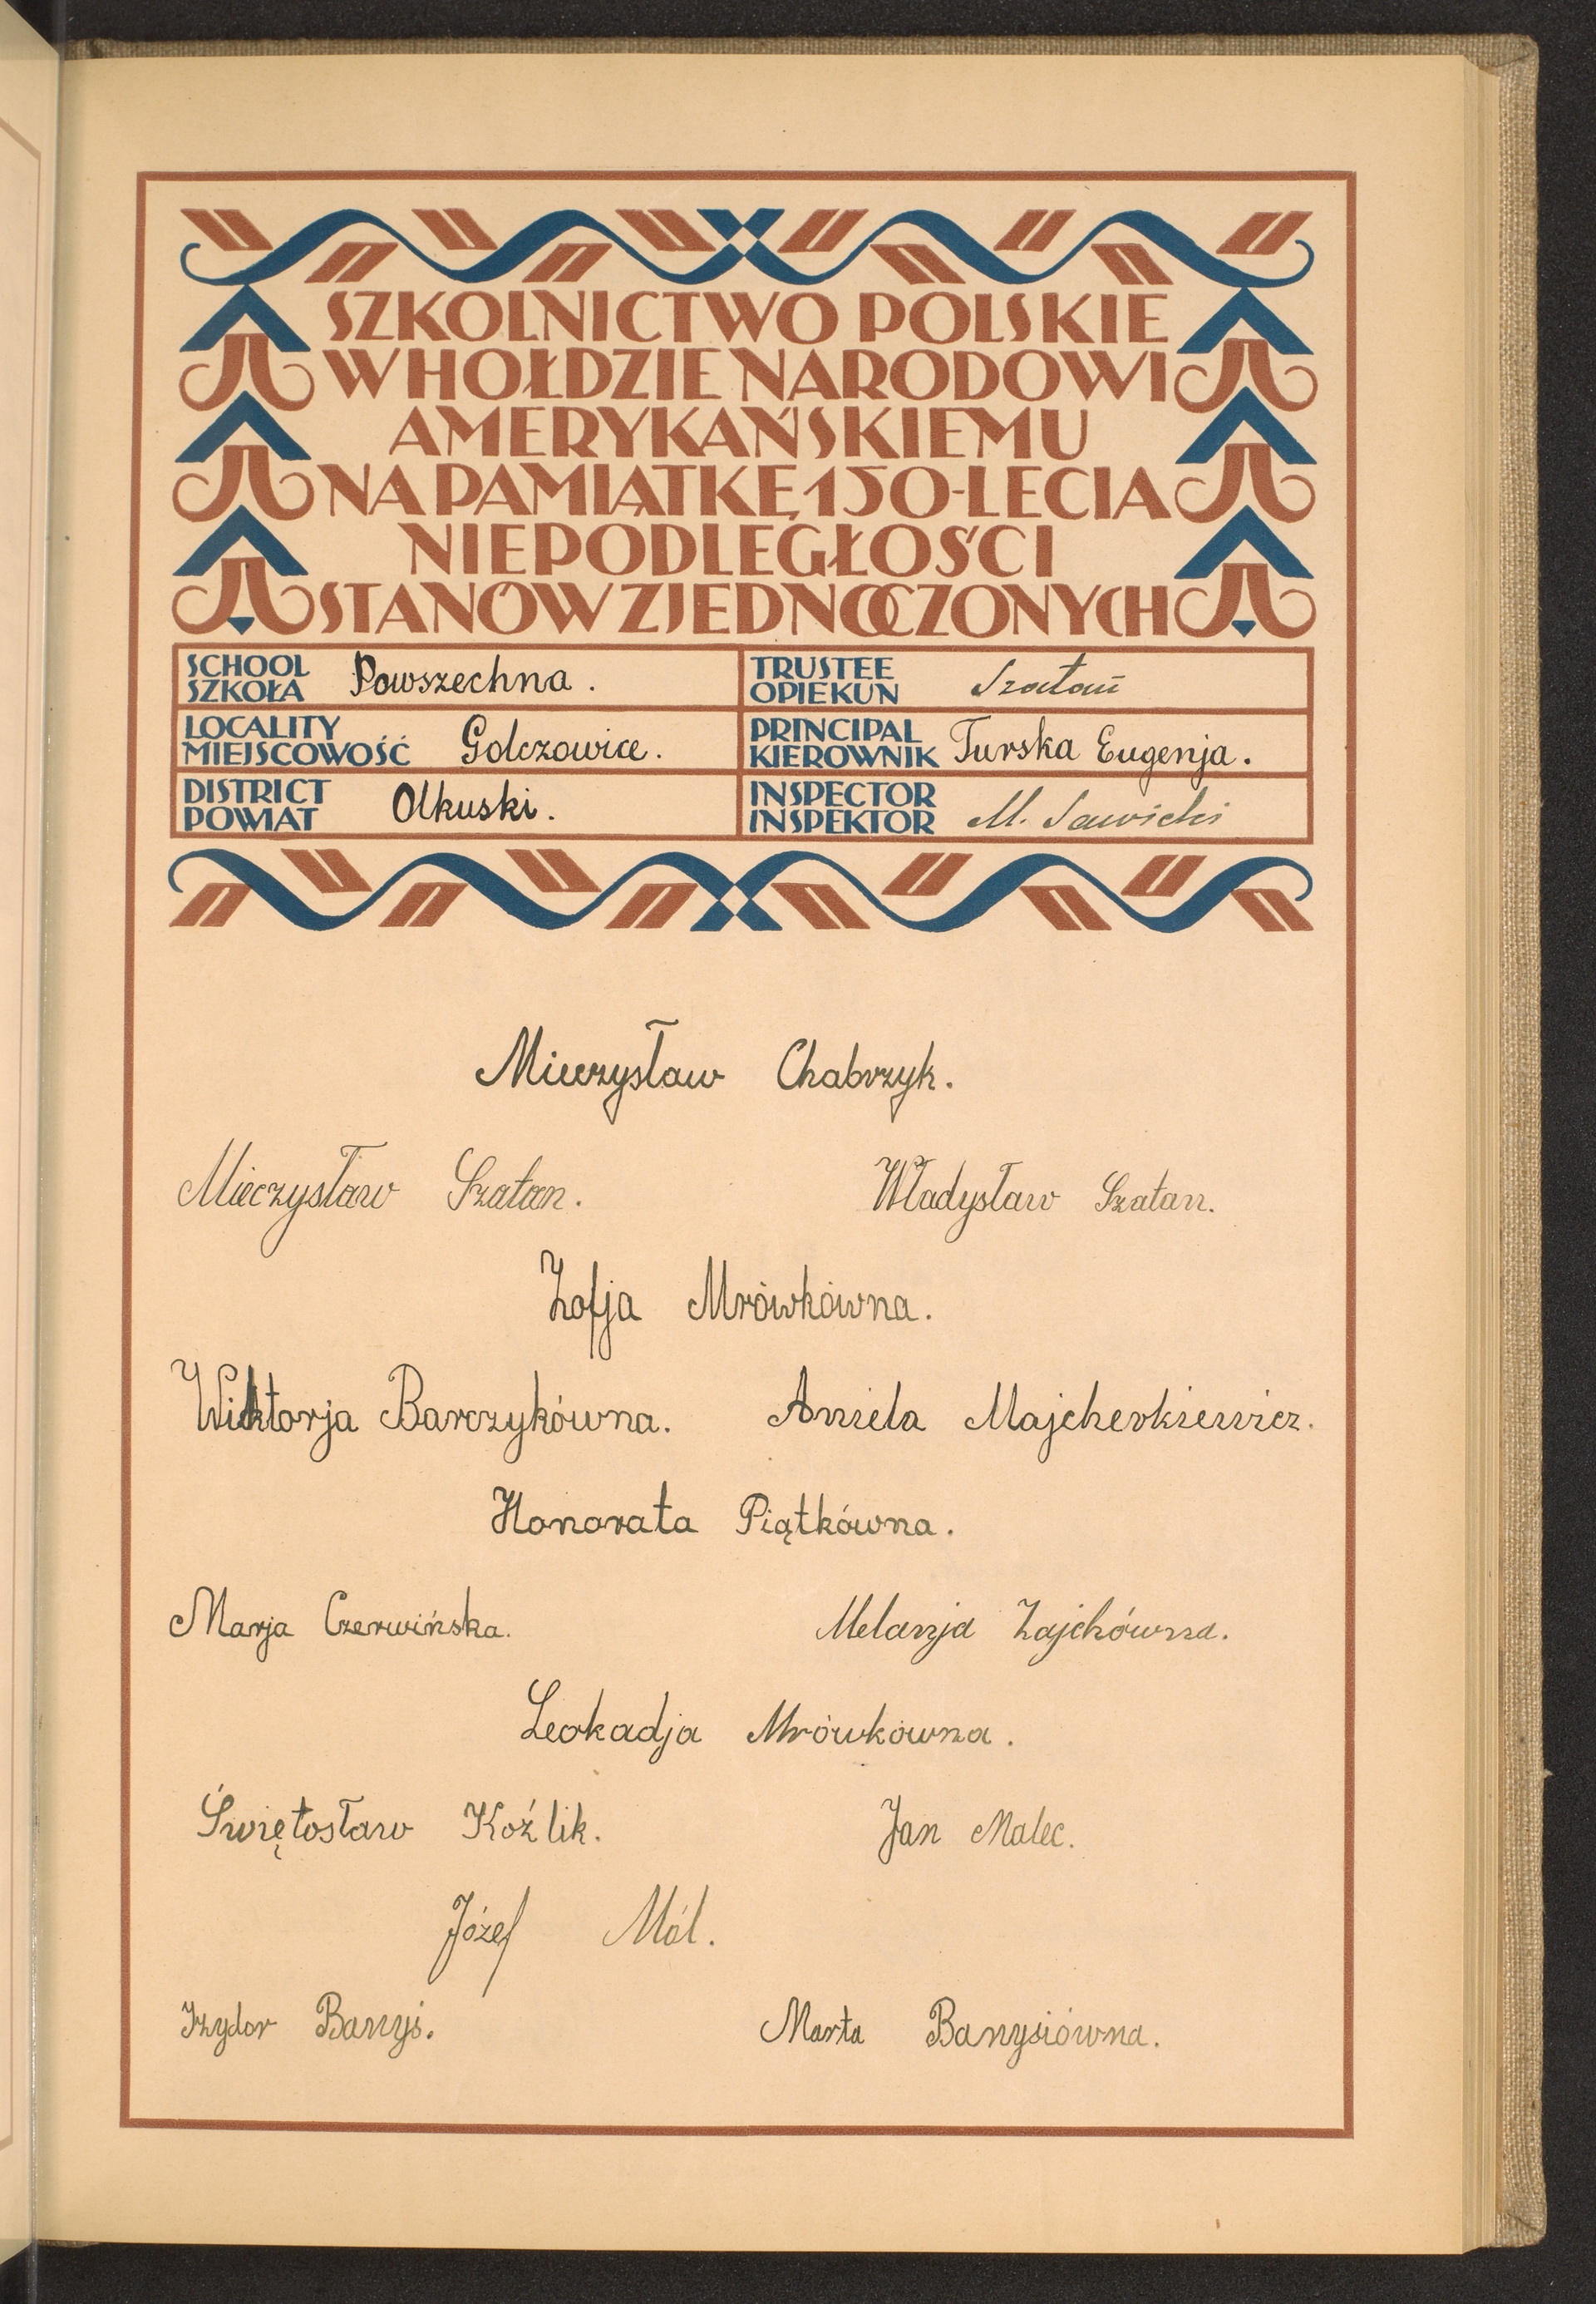 SZKOLNICTWO POLSKIE
W HOŁDZIE NARODOWI
AMERYKAŃSKIEMU
NA PAMIĄTKĘ 150-LECIA
NIEPODLEGŁOŚCI
STANÓW ZJEDNOCZONYCH
SCHOOL
SZKOŁA Powszechna.
TRUSTEE
OPIEKUN Szatan
LOCALITY
MIEJSCOWOŚĆ Golczowice.
PRINCIPAL
KIEROWNIK Turska Eugenja.
DISTRICT
POWIAT Olkuski.
INSPECTOR
INSPEKTOR M. Sawicki
Mieczysław Chabrzyk.
Mieczysław Szatan. Władysław Szatan.
Zofja Mrówkówna.
Wiktorja Barczykówna. Aniela Majcherkiewicz.
Honorata Piątkówna.
Marja Czerwińska. Melanja Zajchówna.
Leokadja Mrówkówna.
Świętosław Koźlik. Jan Malec.
Józef Mól.
Izydor Banyś. Marta Banysiówna.